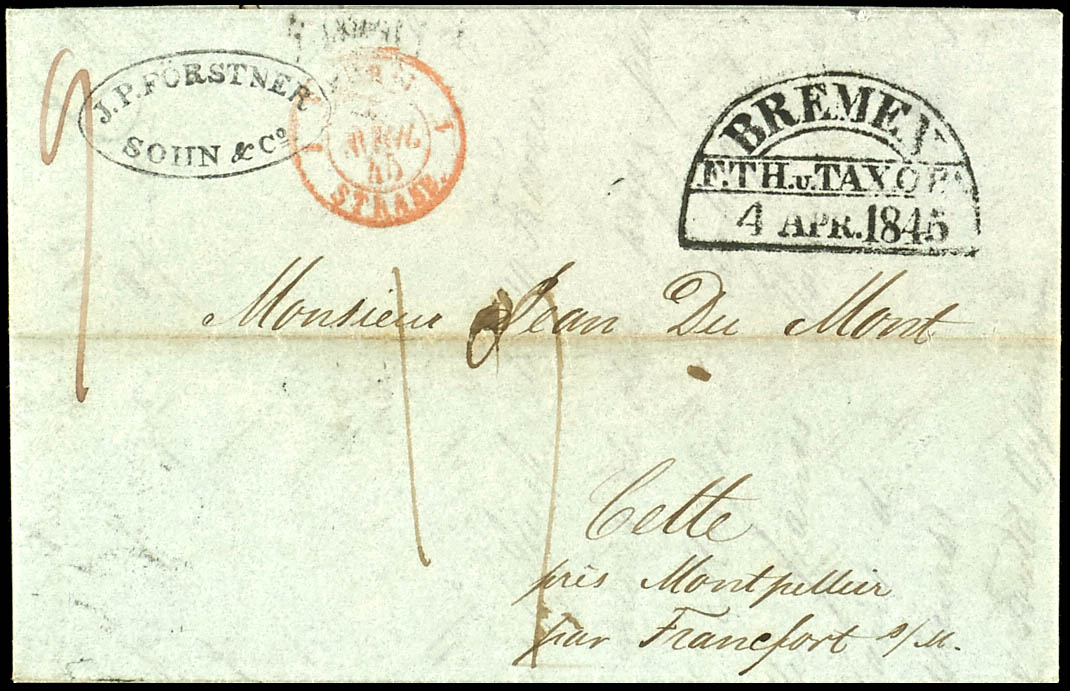 J.P. FORSTNER
SOHN & Co
1 1
AVRIL
45
STRASB.
BREMEN
F.TH.u.TAX
4 APR. 1845
9
Monsieur Jean Du Mont
Cette
près Montpellier
par Francfort s/M.